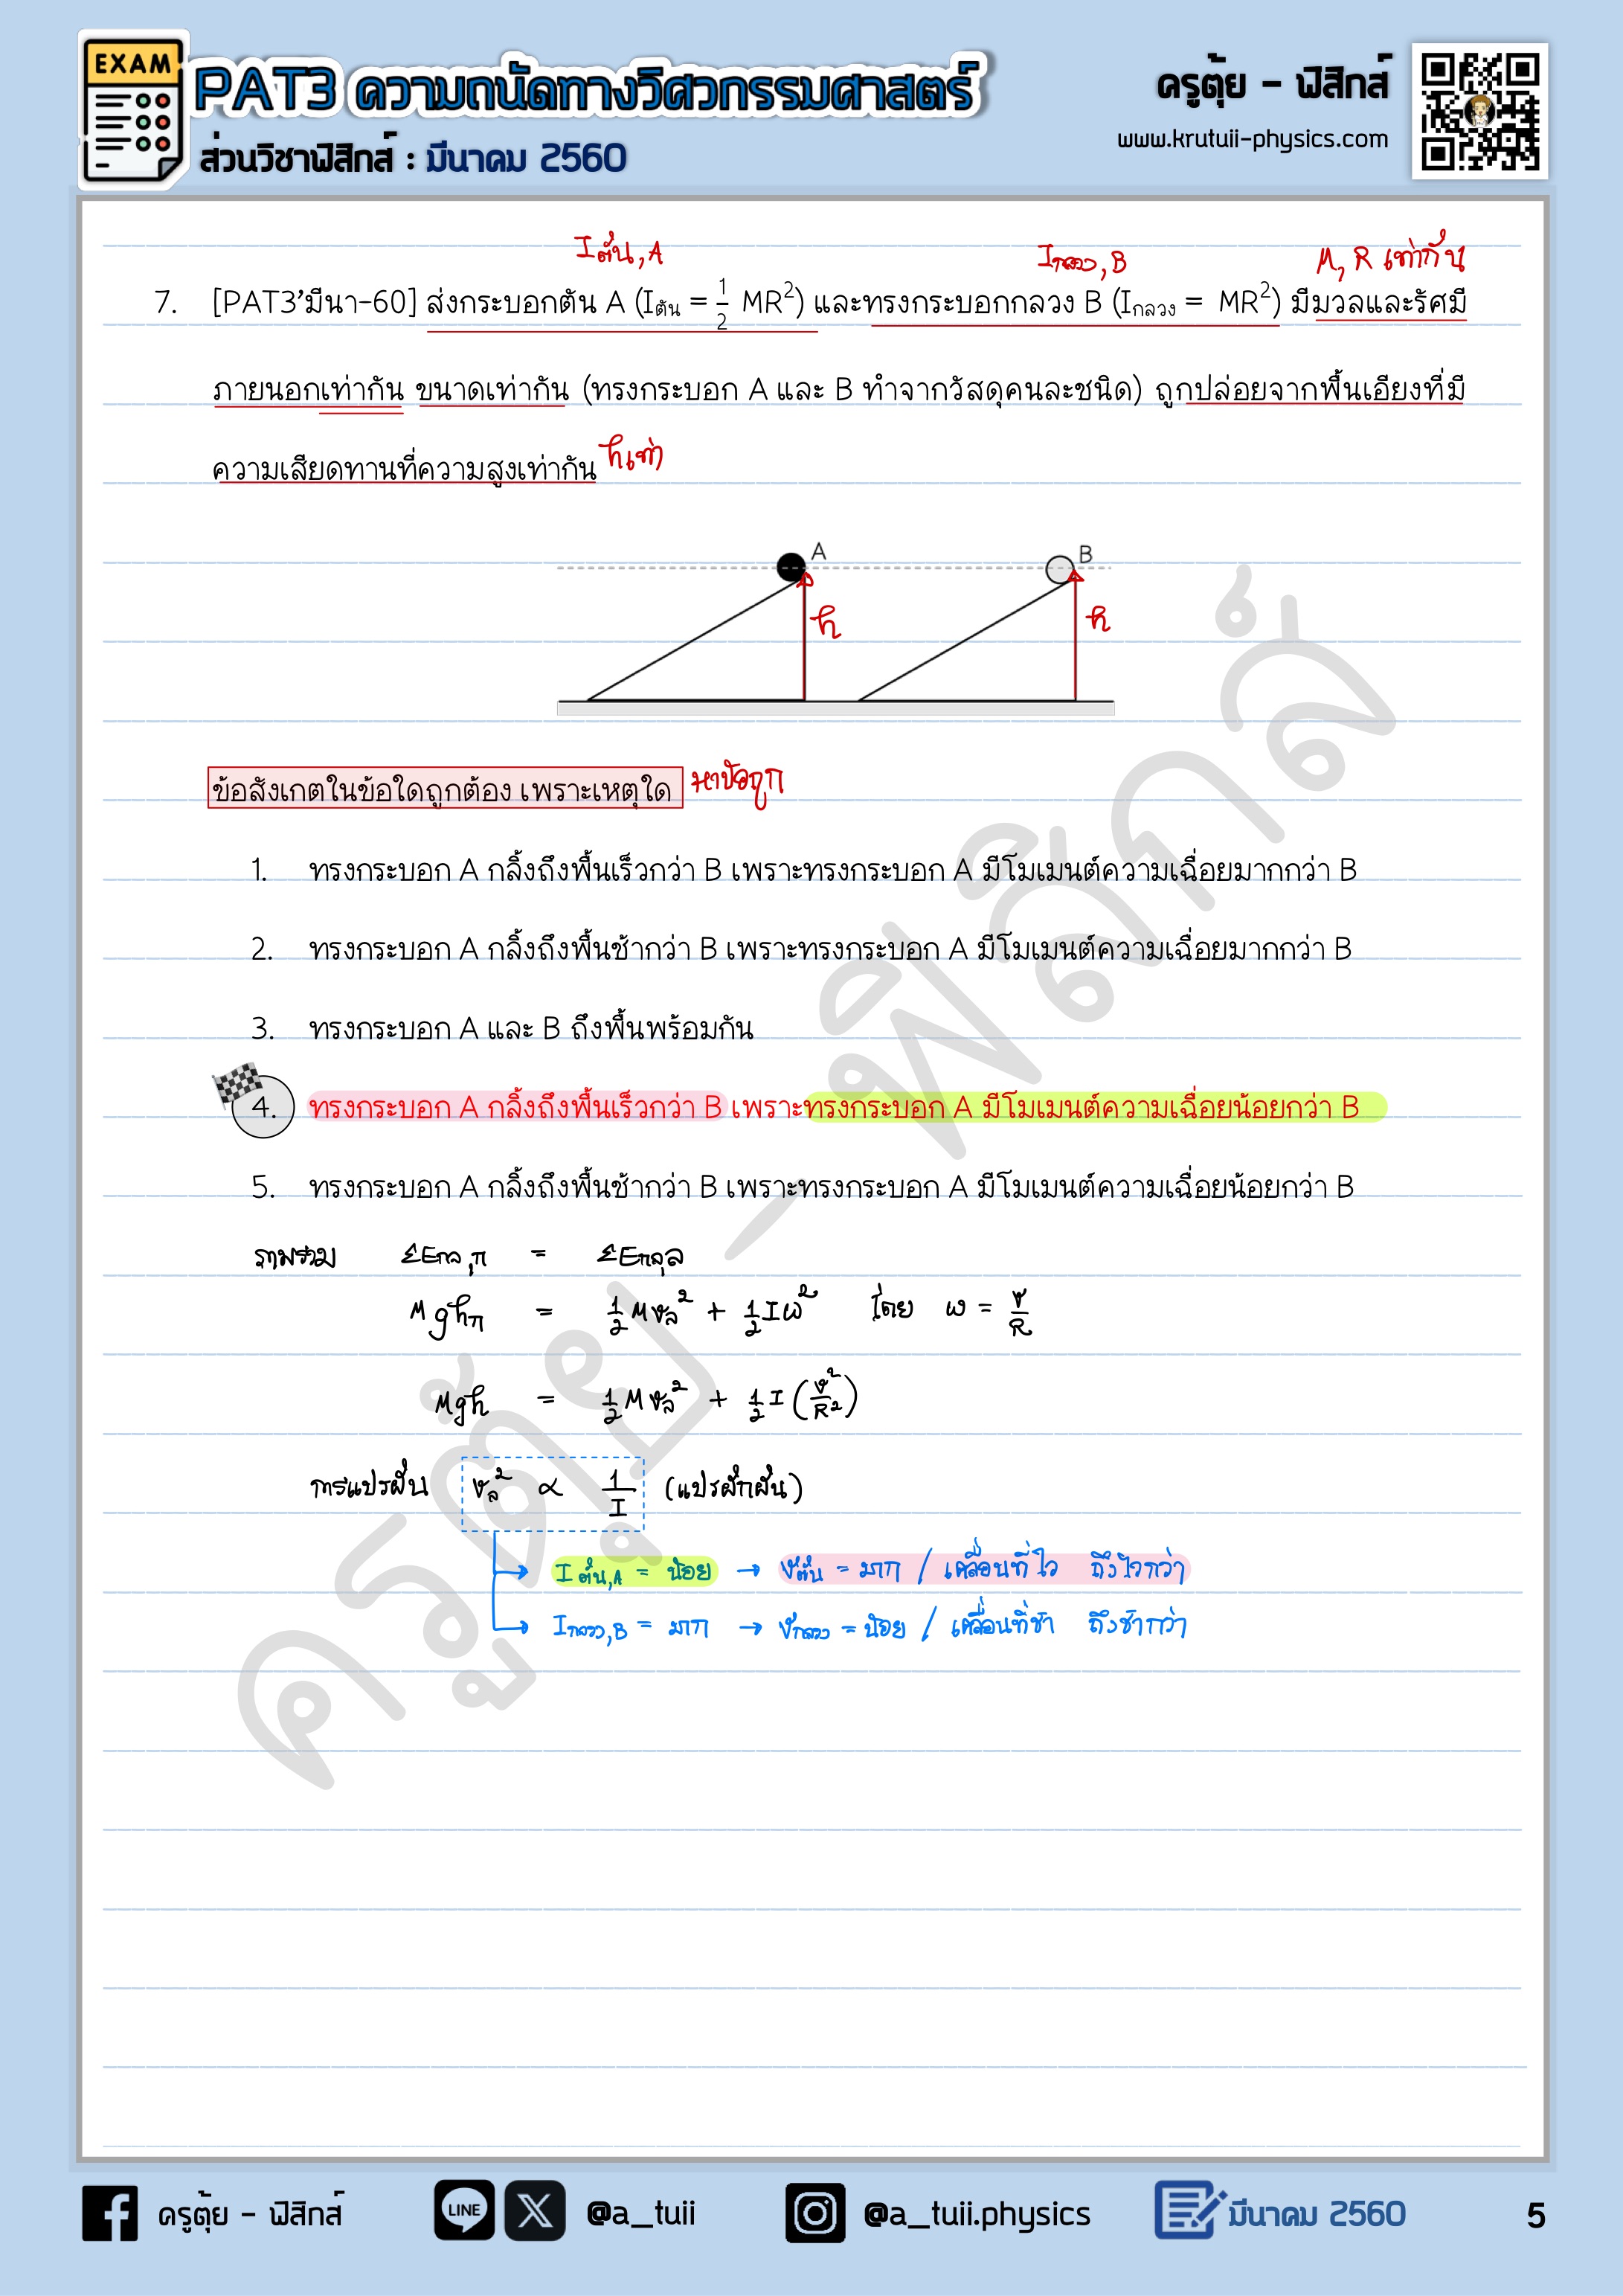 EXAM
PAT3 ความถนัดทางวิศวกรรมศาสตร์
ส่วนวิชาฟิสิกส์ : มีนาคม 2560
ครูตุ้ย - ฟิสิกส์
www.krutuii-physics.com
Iตัน,A Iกลวง,B M, R เท่ากัน
7. [PAT3'มีนา-60] ส่งกระบอกตัน A (Iตัน = 1/2 MR²) และทรงกระบอกกลวง B (Iกลวง = MR²) มีมวลและรัศมี
ภายนอกเท่ากัน ขนาดเท่ากัน (ทรงกระบอก A และ B ทำจากวัสดุคนละชนิด) ถูกปล่อยจากพื้นเอียงที่มี
ความเสียดทานที่ความสูงเท่ากัน hเท่า
A B
h h
ข้อสังเกตในข้อใดถูกต้อง เพราะเหตุใด หาข้อถูก
1. ทรงกระบอก A กลิ้งถึงพื้นเร็วกว่า B เพราะทรงกระบอก A มีโมเมนต์ความเฉื่อยมากกว่า B
2. ทรงกระบอก A กลิ้งถึงพื้นช้ากว่า B เพราะทรงกระบอก A มีโมเมนต์ความเฉื่อยมากกว่า B
3. ทรงกระบอก A และ B ถึงพื้นพร้อมกัน
4. ทรงกระบอก A กลิ้งถึงพื้นเร็วกว่า B เพราะทรงกระบอก A มีโมเมนต์ความเฉื่อยน้อยกว่า B
5. ทรงกระบอก A กลิ้งถึงพื้นช้ากว่า B เพราะทรงกระบอก A มีโมเมนต์ความเฉื่อยน้อยกว่า B
ΣEกล,ก = ΣEกล,ล
Mghก = 1/2 Mvล² + 1/2 Iω² โดย ω = v/R
Mgh = 1/2 Mvล² + 1/2 I (v²/R²)
การแปรผัน vล² ∝ 1/I (แปรผกผัน)
Iตัน,A = น้อย → vตัน = มาก / เคลื่อนที่ไว ถึงไวกว่า
Iกลวง,B = มาก → vกลวง = น้อย / เคลื่อนที่ช้า ถึงช้ากว่า
ครูตุ้ย - ฟิสิกส์
ครูตุ้ย - ฟิสิกส์ LINE @a_tuii @a_tuii.physics มีนาคม 2560 5